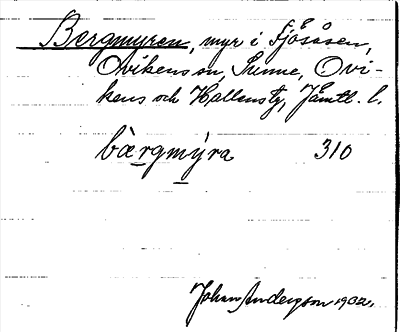 Bergmyren, myr i Fjösåsen,
Ovikens sn, Sunne, Ovi-
kens och Hallens tg, Jämtl. l.
bæ̀rgmýra 310
Johan Anderson 1932.